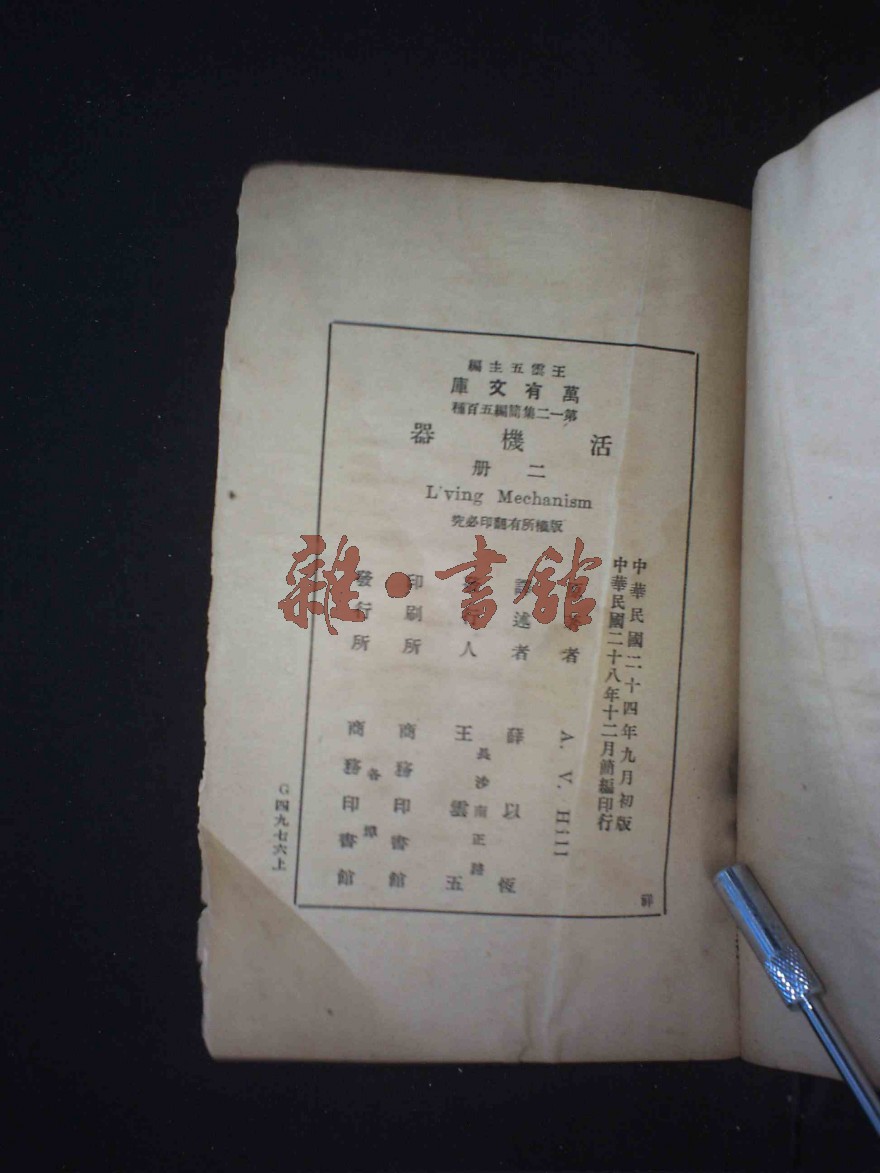 王雲五主編
萬有文庫
第一二集簡編五百種
活機器
二册
L'ving Mechanism
版權所有翻印必究
中華民國二十四年九月初版
中華民國二十八年十二月簡編印行
者 A. V. Hill
譯述者 薛以恆
發行人 王雲五
長沙南正路
印刷所 商務印書館
各埠
發行所 商務印書館
G四九七六上
雜·書館